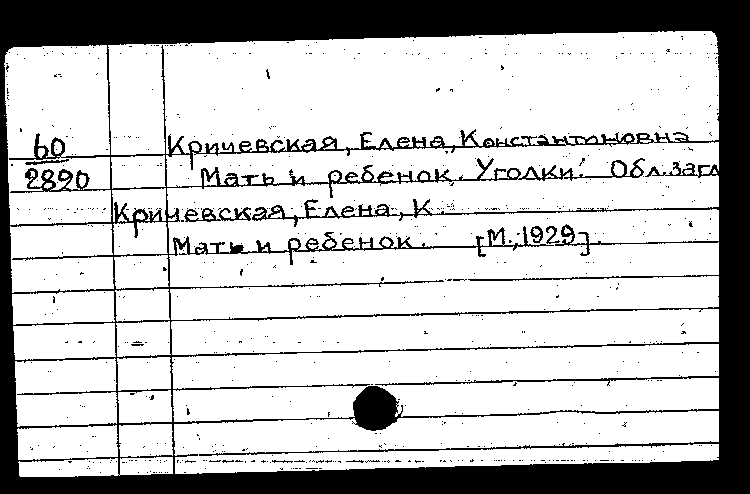 60 Кричевская, Елена, Константиновна
2890 Мать и ребенок. Уголки. Обл. загл
Кричевская, Елена, К.
Мать и ребенок. [М., 1929].